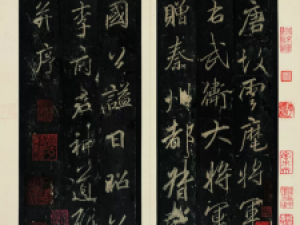 唐故雲麾將軍
右武衛大將軍
贈秦州都督
國公謚曰昭公
李府君神道碑
并序